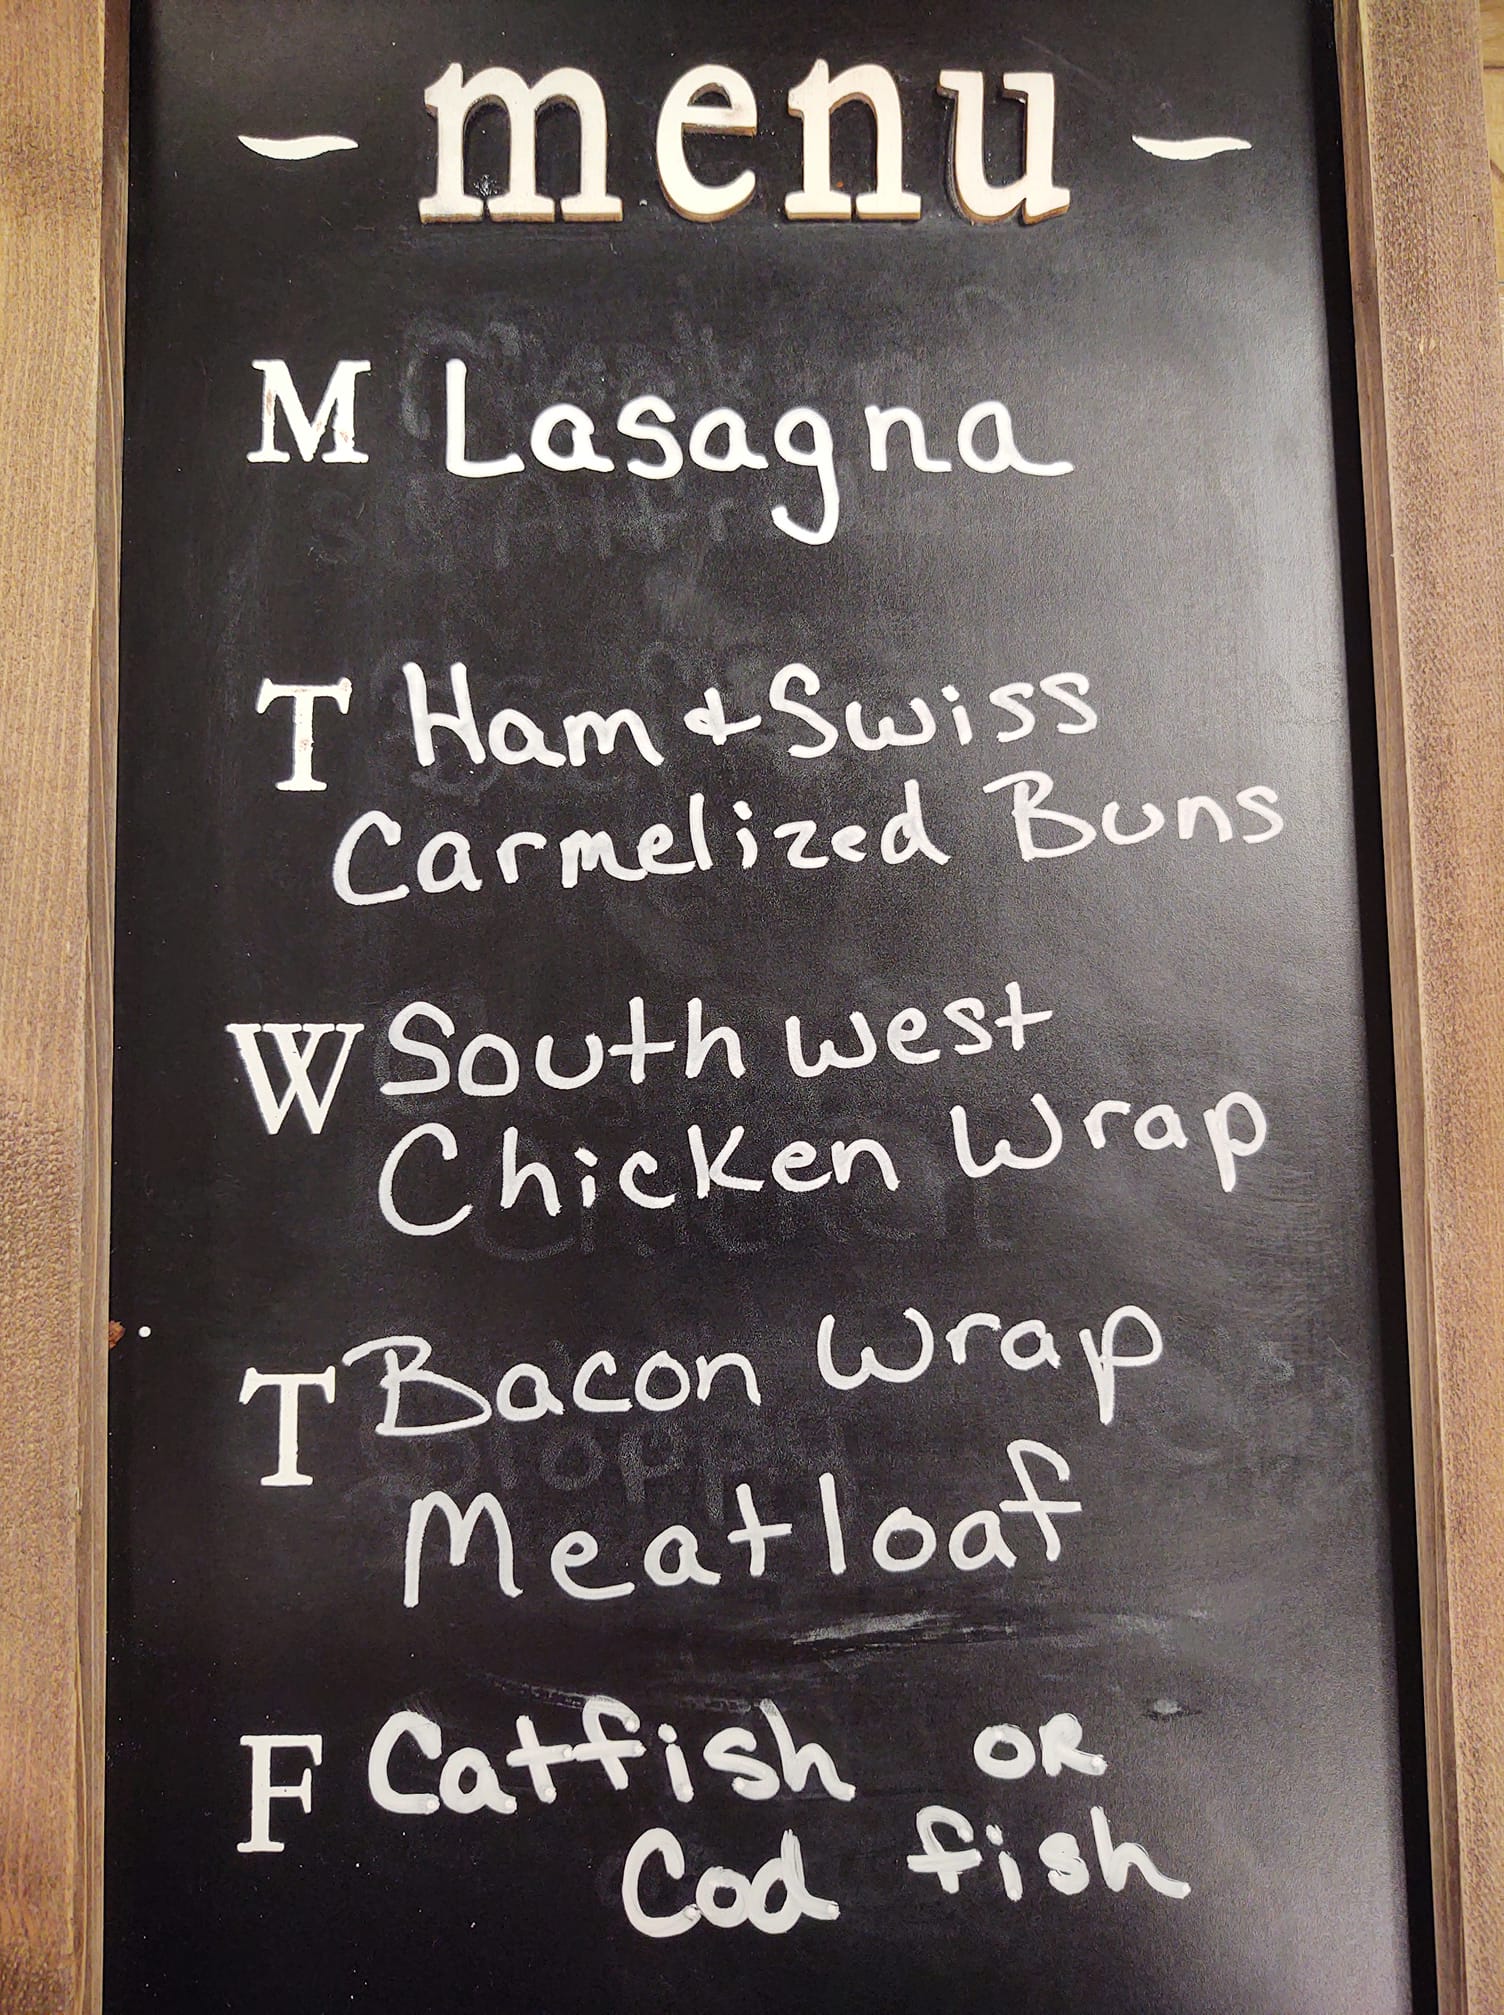 menu
M Lasagna
T Ham & Swiss
Carmelized Buns
W South west
Chicken Wrap
T Bacon Wrap
Meatloaf
F Catfish OR
Cod fish